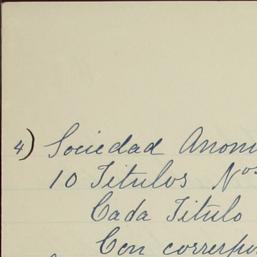 4) Sociedad Anoni
10 Titulos Nos
Cada Titulo
Con correspo